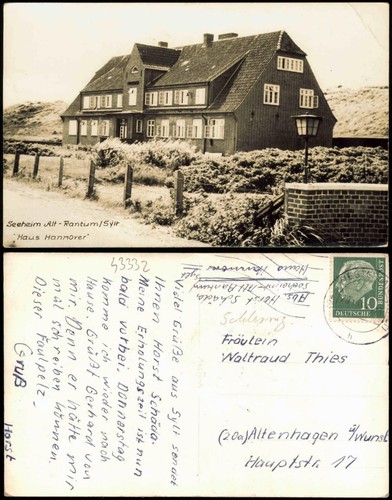 Seeheim Alt-Rantum/Sylt
"Haus Hannover"
43332
Viele Grüße aus Sylt sendet
Ihnen Horst Schäda.
Meine Erholungszeit ist nun
bald vorbei. Donnerstag
komme ich wieder nach
Hause. Grüßt Gerhard von
mir. Denn er hätte mir
mal schreiben können.
Dieser Faulpelz.
Gruß
Horst
Abs. Horst Schäda
Seeheim-Alt Rantum
Haus Hannover
Sylt
Schleswig
10
DEUTSCHE BUNDESPOST
Fräulein
Waltraud Thies
(20a) Altenhagen a/Wunst
Hauptstr. 17